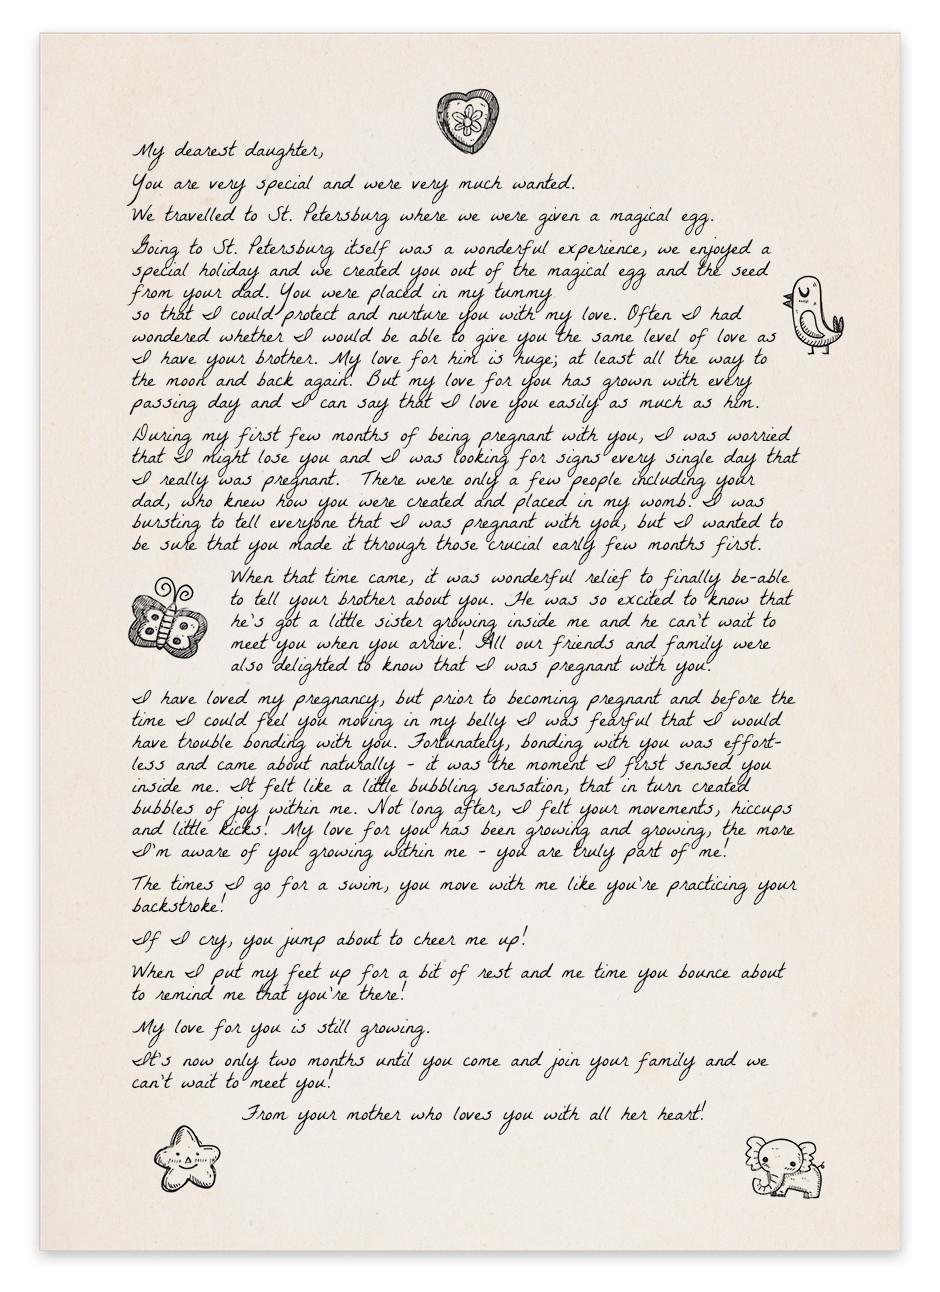 My dearest daughter,
You are very special and were very much wanted.
We travelled to St. Petersburg where we were given a magical egg.
Going to St. Petersburg itself was a wonderful experience, we enjoyed a
special holiday and we created you out of the magical egg and the seed
from your dad. You were placed in my tummy
so that I could protect and nurture you with my love. Often I had
wondered whether I would be able to give you the same level of love as
I have your brother. My love for him is huge; at least all the way to
the moon and back again. But my love for you has grown with every
passing day and I can say that I love you easily as much as him.
During my first few months of being pregnant with you, I was worried
that I might lose you and I was looking for signs every single day that
I really was pregnant. There were only a few people including your
dad, who knew how you were created and placed in my womb. I was
bursting to tell everyone that I was pregnant with you, but I wanted to
be sure that you made it through those crucial early few months first.
When that time came, it was wonderful relief to finally be-able
to tell your brother about you. He was so excited to know that
he's got a little sister growing inside me and he can't wait to
meet you when you arrive! All our friends and family were
also delighted to know that I was pregnant with you.
I have loved my pregnancy, but prior to becoming pregnant and before the
time I could feel you moving in my belly I was fearful that I would
have trouble bonding with you. Fortunately, bonding with you was effort-
less and came about naturally - it was the moment I first sensed you
inside me. It felt like a little bubbling sensation, that in turn created
bubbles of joy within me. Not long after, I felt your movements, hiccups
and little kicks! My love for you has been growing and growing, the more
I'm aware of you growing within me - you are truly part of me!
The times I go for a swim, you move with me like you're practicing your
backstroke!
If I cry, you jump about to cheer me up!
When I put my feet up for a bit of rest and me time you bounce about
to remind me that you're there!
My love for you is still growing.
It's now only two months until you come and join your family and we
can't wait to meet you!
From your mother who loves you with all her heart!